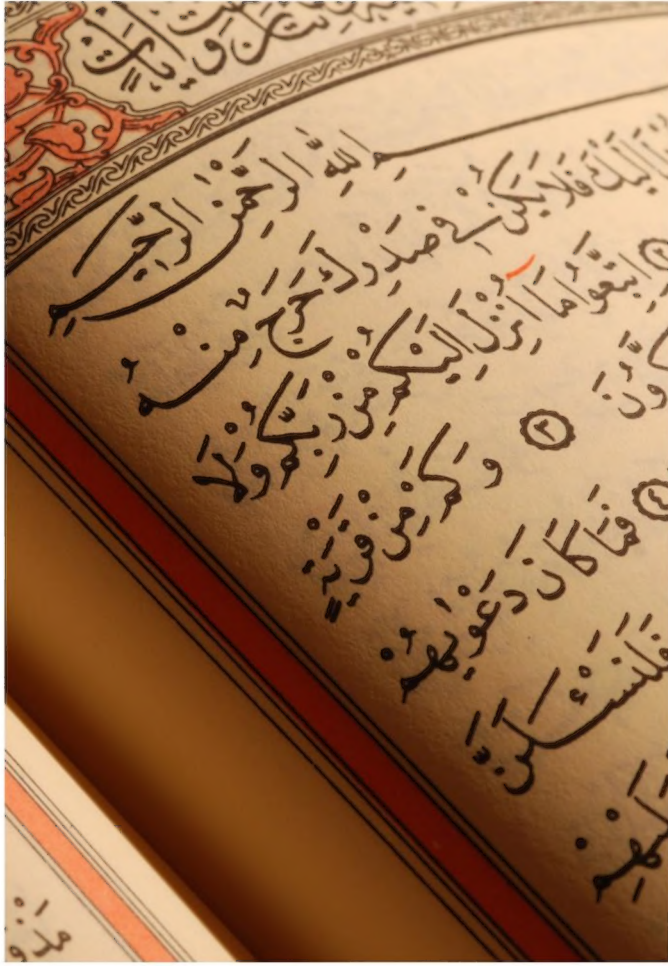 بِسْمِ اللّٰهِ الرَّحْمٰنِ الرَّحِيمِ
اِلَيْكَ فَلَا يَكُنْ فِي صَدْرِكَ حَرَجٌ مِنْهُ
٢ اِتَّبِعُوا مَا اُنْزِلَ اِلَيْكُمْ مِنْ رَبِّكُمْ وَلَا
٣ وَكَمْ مِنْ قَرْيَةٍ
٤ فَمَا كَانَ دَعْوٰيهُمْ
فَلَنَسْـَٔلَنَّ